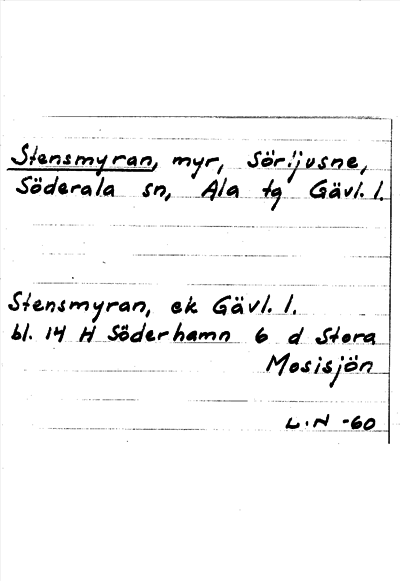 Stensmyran, myr, Sörljusne,
Söderala sn, Ala tg Gävl. l.
Stensmyran, ek Gävl. l.
bl. 14 H Söderhamn 6 d Stora
Mosisjön
L.N -60